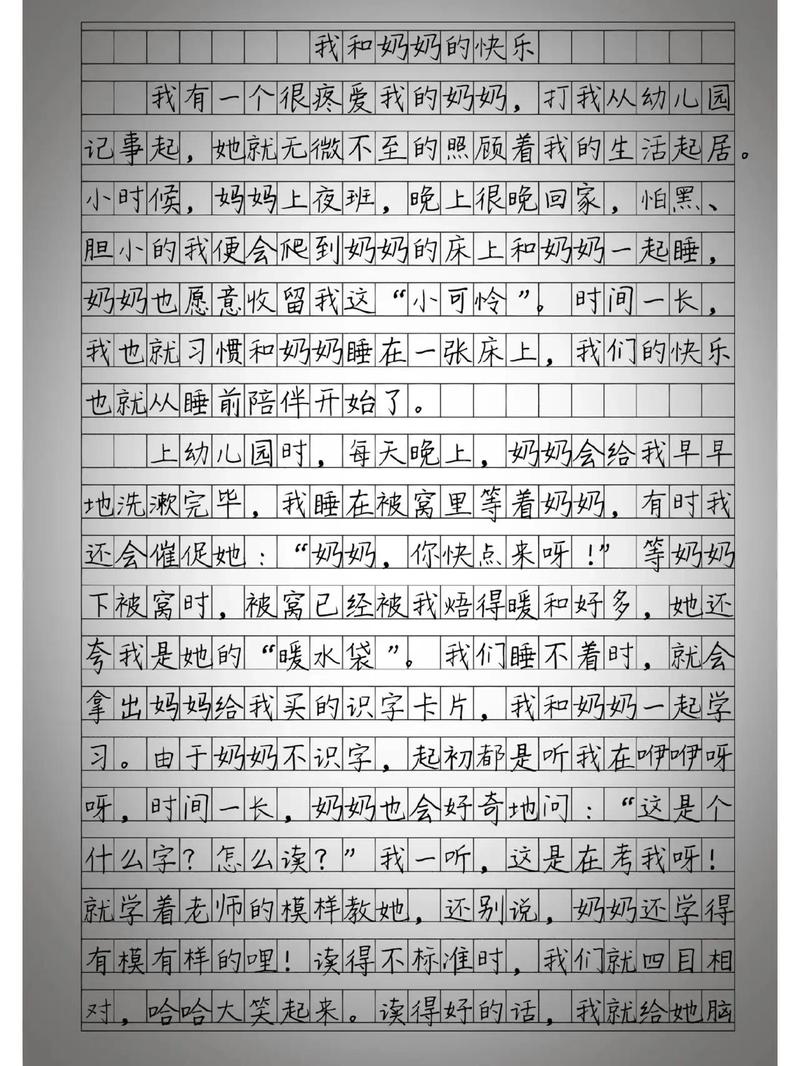 我和奶奶的快乐
我有一个很疼爱我的奶奶，打我从幼儿园
记事起，她就无微不至的照顾着我的生活起居。
小时候，妈妈上夜班，晚上很晚回家，怕黑、
胆小的我便会爬到奶奶的床上和奶奶一起睡，
奶奶也愿意收留我这“小可怜”。时间一长，
我也就习惯和奶奶睡在一张床上，我们的快乐
也就从睡前陪伴开始了。
上幼儿园时，每天晚上，奶奶会给我早早
地洗漱完毕，我睡在被窝里等着奶奶，有时我
还会催促她：“奶奶，你快点来呀！”等奶奶
下被窝时，被窝已经被我焐得暖和好多，她还
夸我是她的“暖水袋”。我们睡不着时，就会
拿出妈妈给我买的识字卡片，我和奶奶一起学
习。由于奶奶不识字，起初都是听我在咿咿呀
呀，时间一长，奶奶也会好奇地问：“这是个
什么字？怎么读？”我一听，这是在考我呀！
就学着老师的模样教她，还别说，奶奶还学得
有模有样的哩！读得不标准时，我们就四目相
对，哈哈大笑起来。读得好的话，我就给她脑